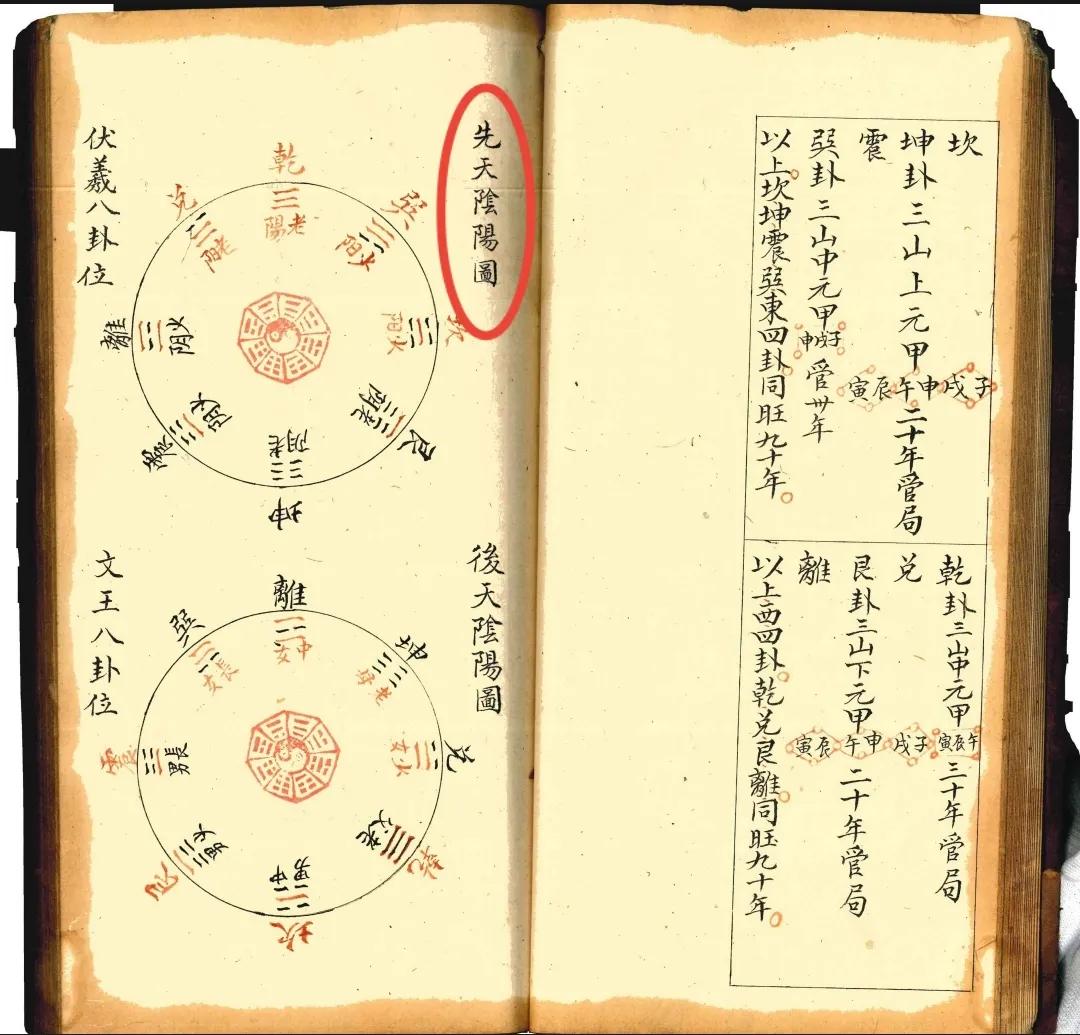 坎
坤卦三山上元甲子戌申午辰寅二十年管局
震
巽卦三山中元甲子戌申管卅年
以上坎坤震巽東四卦同旺九十年
乾卦三山中元甲午辰寅三十年管局
兌
艮卦三山下元甲子戌申午辰寅二十年管局
離
以上西四卦乾兌艮離同旺九十年
先天陰陽圖
乾
老陽
巽
少阳
坎
少阳
艮
老阴
坤
老阴
震
少阴
離
少阴
兌
老阳
伏羲八卦位
後天陰陽圖
離
中女
坤
老母
兌
少女
乾
老父
坎
中男
艮
少男
震
長男
巽
長女
文王八卦位